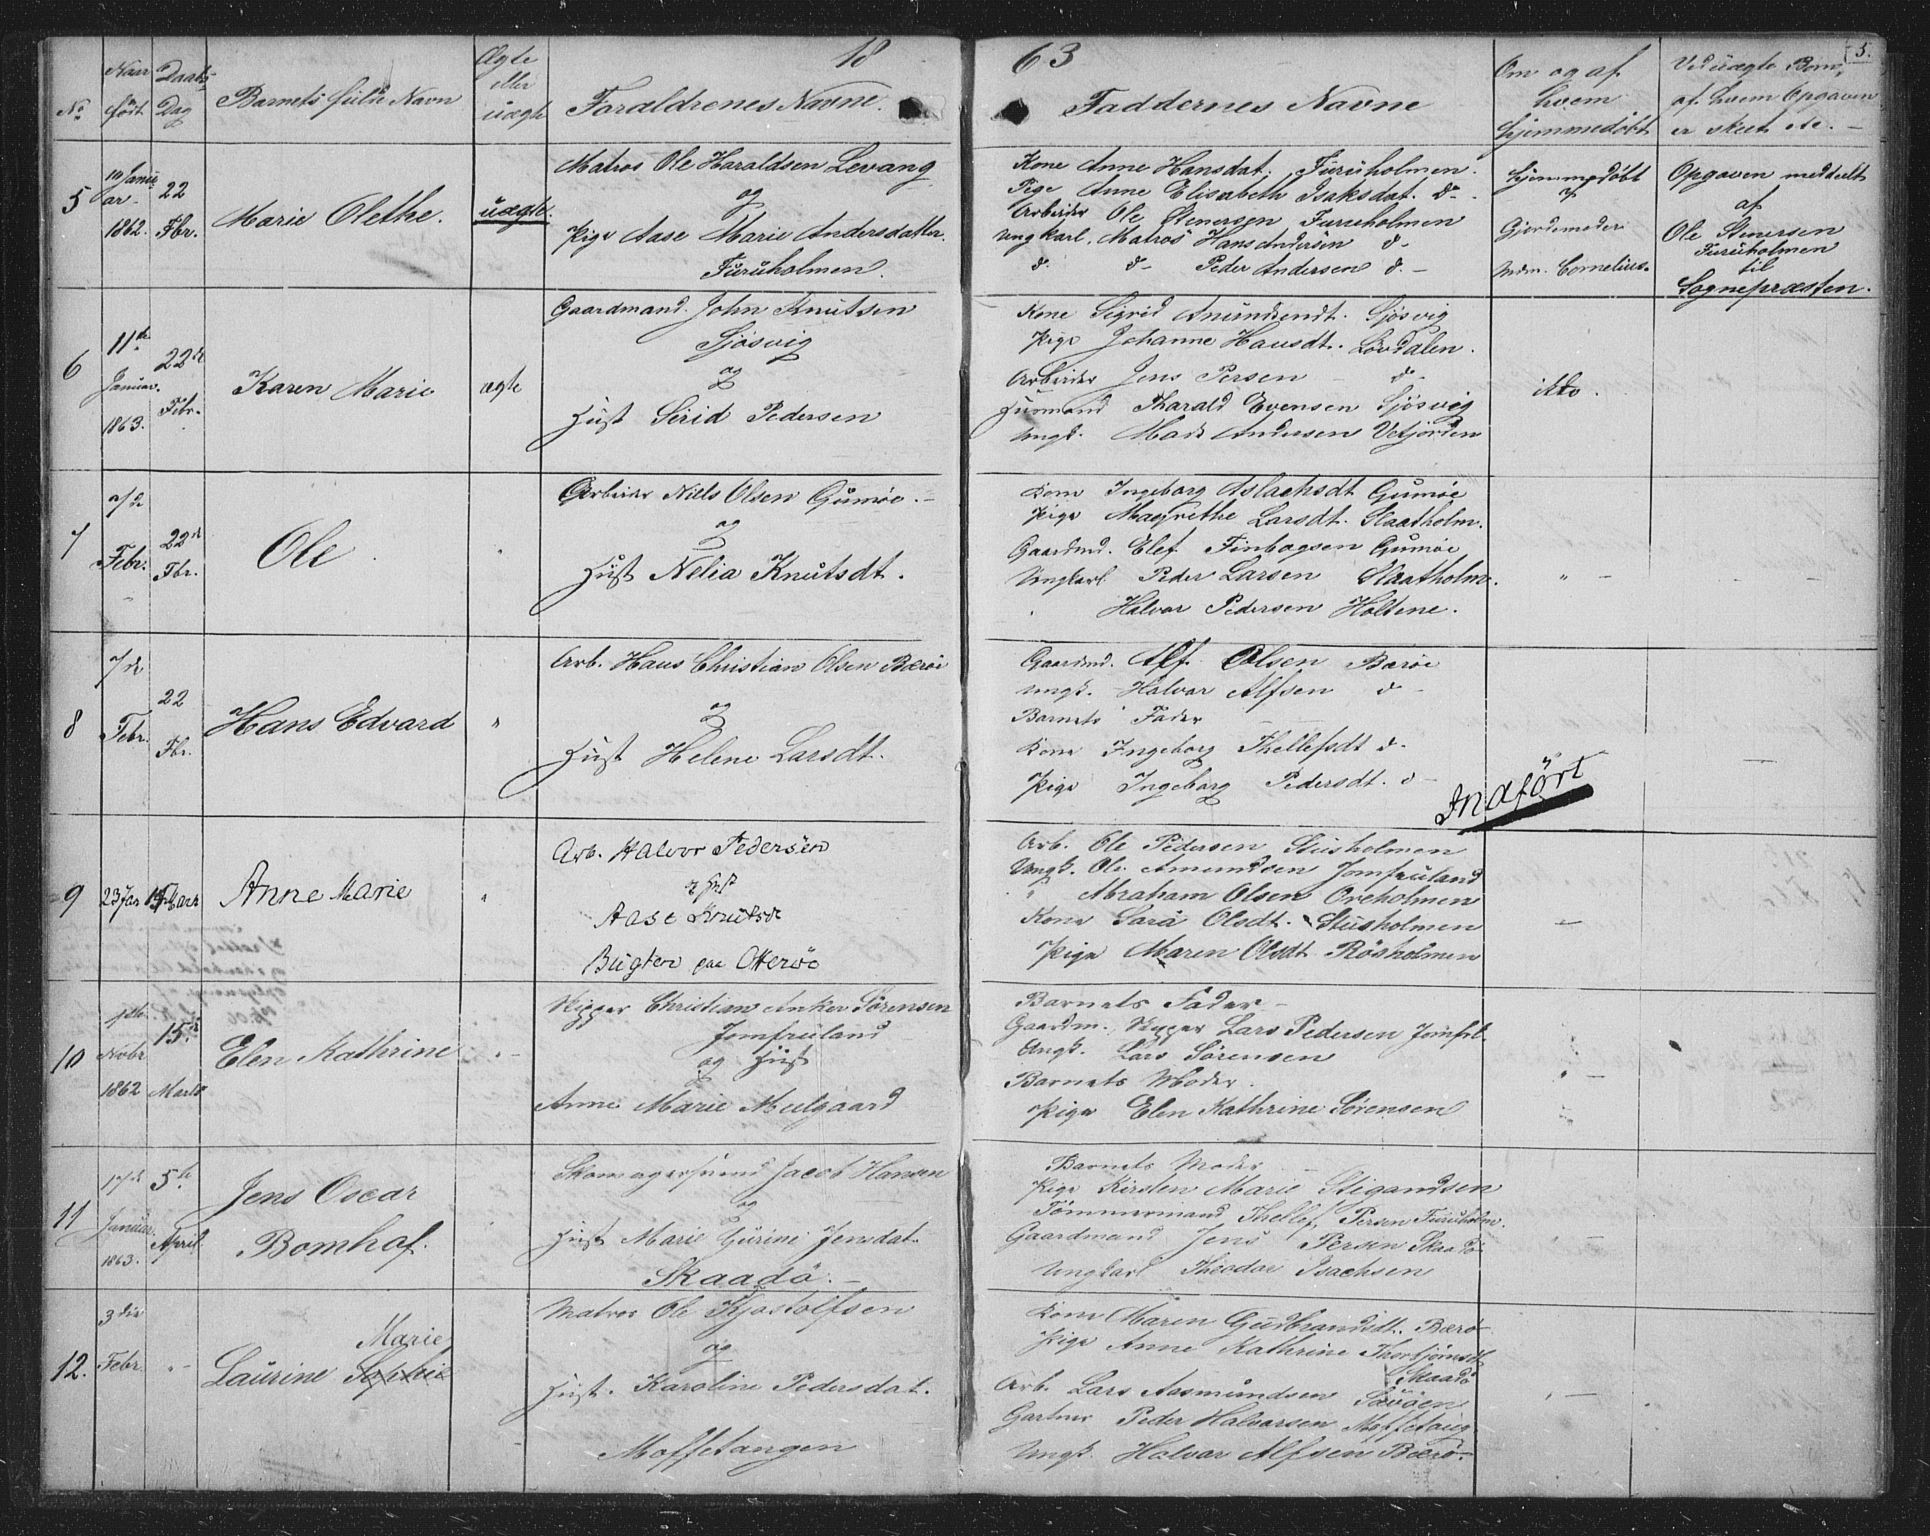 18 63
5.
No
Naar født
Daabs-Dag
Barnets fulde Navn
Ægte eller uægte
Forældrenes Navne.
Faddernes Navne
Om og af hvem hjemmedøbt
Ved uægte Børn, af hvem Opgaven er skeet &c. –
5
Januar 1862.
22 Fbr.
Marie Olethe.
uægte.
Matros Ole Haraldsen Levang
og
Pige Aase Marie Andersdatter.
Furuholmen.
Kone Anne Hansdat. Furuholmen.
Pige Anne Elisabeth Isaksdat. do
Arbeider Ole Stenersen Furuholmen
Ungkarl. Matros Hans Andersen do
do do Peder Andersen do
Hjemmedøbt af Gjordemoder
Mdm. Cornelius.
Opgaven meddelt
af
Ole Stenersen
Furuholmen
til
Sognepræsten.
6
11te Januar. 1863.
22de Febr.
Karen Marie
ægte
Gaardmand. John Knutsen
Sjösvig
og
Hust Serid Pedersen
Kone Sigrid Anundsendt. Sjösvig
Pige Johanne Hansdt. Lövdalen.
Arbeider Jens Persen do
Husmand Tharald Evensen Sjösvig
Ungk. Mads Andersen Vefjorden
ikke.
7
7de Febr.
22de Fbr.
Ole
Arbeider Niels Olsen Gumøe. –
og
Hust Nelia Knutsdt.
Kone Ingeborg Aslachsdt Gumøe
Pige Magrethe Larsdt. Slaatholm.
Gaardmd. Elef Finbogsen Gumøe
Ungkarl Peder Larsen Slaatholm.
Halvor Pedersen Holtene.
8
7de Febr.
22 Fbr.
Hans Edvard
"
Arb. Hans Christian Olsen Bærøe
og
Hust Helene Larsdt.
Gaardmd. Alf Olsen Barøe
Ungk. Halvor Alfsen do
Barnets Fader
Kone Ingeborg Thellefsdt do
Pige Ingeborg Pedersdt. do
Indført
9
23 Jan
15 Marts
Anne Marie
"
Arb. Halvor Pedersen
og Hust
Aase Knutsdt
Bugten paa Otterøe
Arb. Ole Pedersen Stusholmen
Ungk. Ole Amundsen Jomfruland
" Abraham Olsen Oreholmen
Kone Sara Olsdt. Stusholmen
Pige Maren Olsdt. Rösholmen
10
Novbr 1862
15de Marts
Elen Kathrine
Skipper Christian Anker Sörensen
Jomfruland
og Hust
Anne Marie Meelgaard
Barnets Fader –
Gaardm. Skipper Lars Pedersen Jomfrl.
Ungk. Lars Sørensen
Barnets Moder.
Pige Elen Kathrine Sörensen
11
17de Januar. 1863.
5te April
Jens Oscar
Bomhof.
Skomagersvend Jacob Hansen
og
Hust Marie Gurine Jensdat.
Skaadö. –
Barnets Moder
Pige Kirsten Marie Stigandsen
Tömmermand Thellef Persen Furuholm.
Gaardmand Jens Persen Skaadö
Ungkarl Theodor Isachsen
12.
3die Febr.
" –
Laurine Sophie Marie
Matros Ole Kjostolfsen
og
Hust. Karoline Pedersdat.
Moffetangen
Kone Maren Gudbrandsdt. Bærø
Pige Anne Kathrine Thorbjörnsdt
Skaadö
Arb. Lars Aasmundsen Saröen
Gartner Peder Halvorsen Moffetang
Ungk. Halvor Alfsen Bærø.